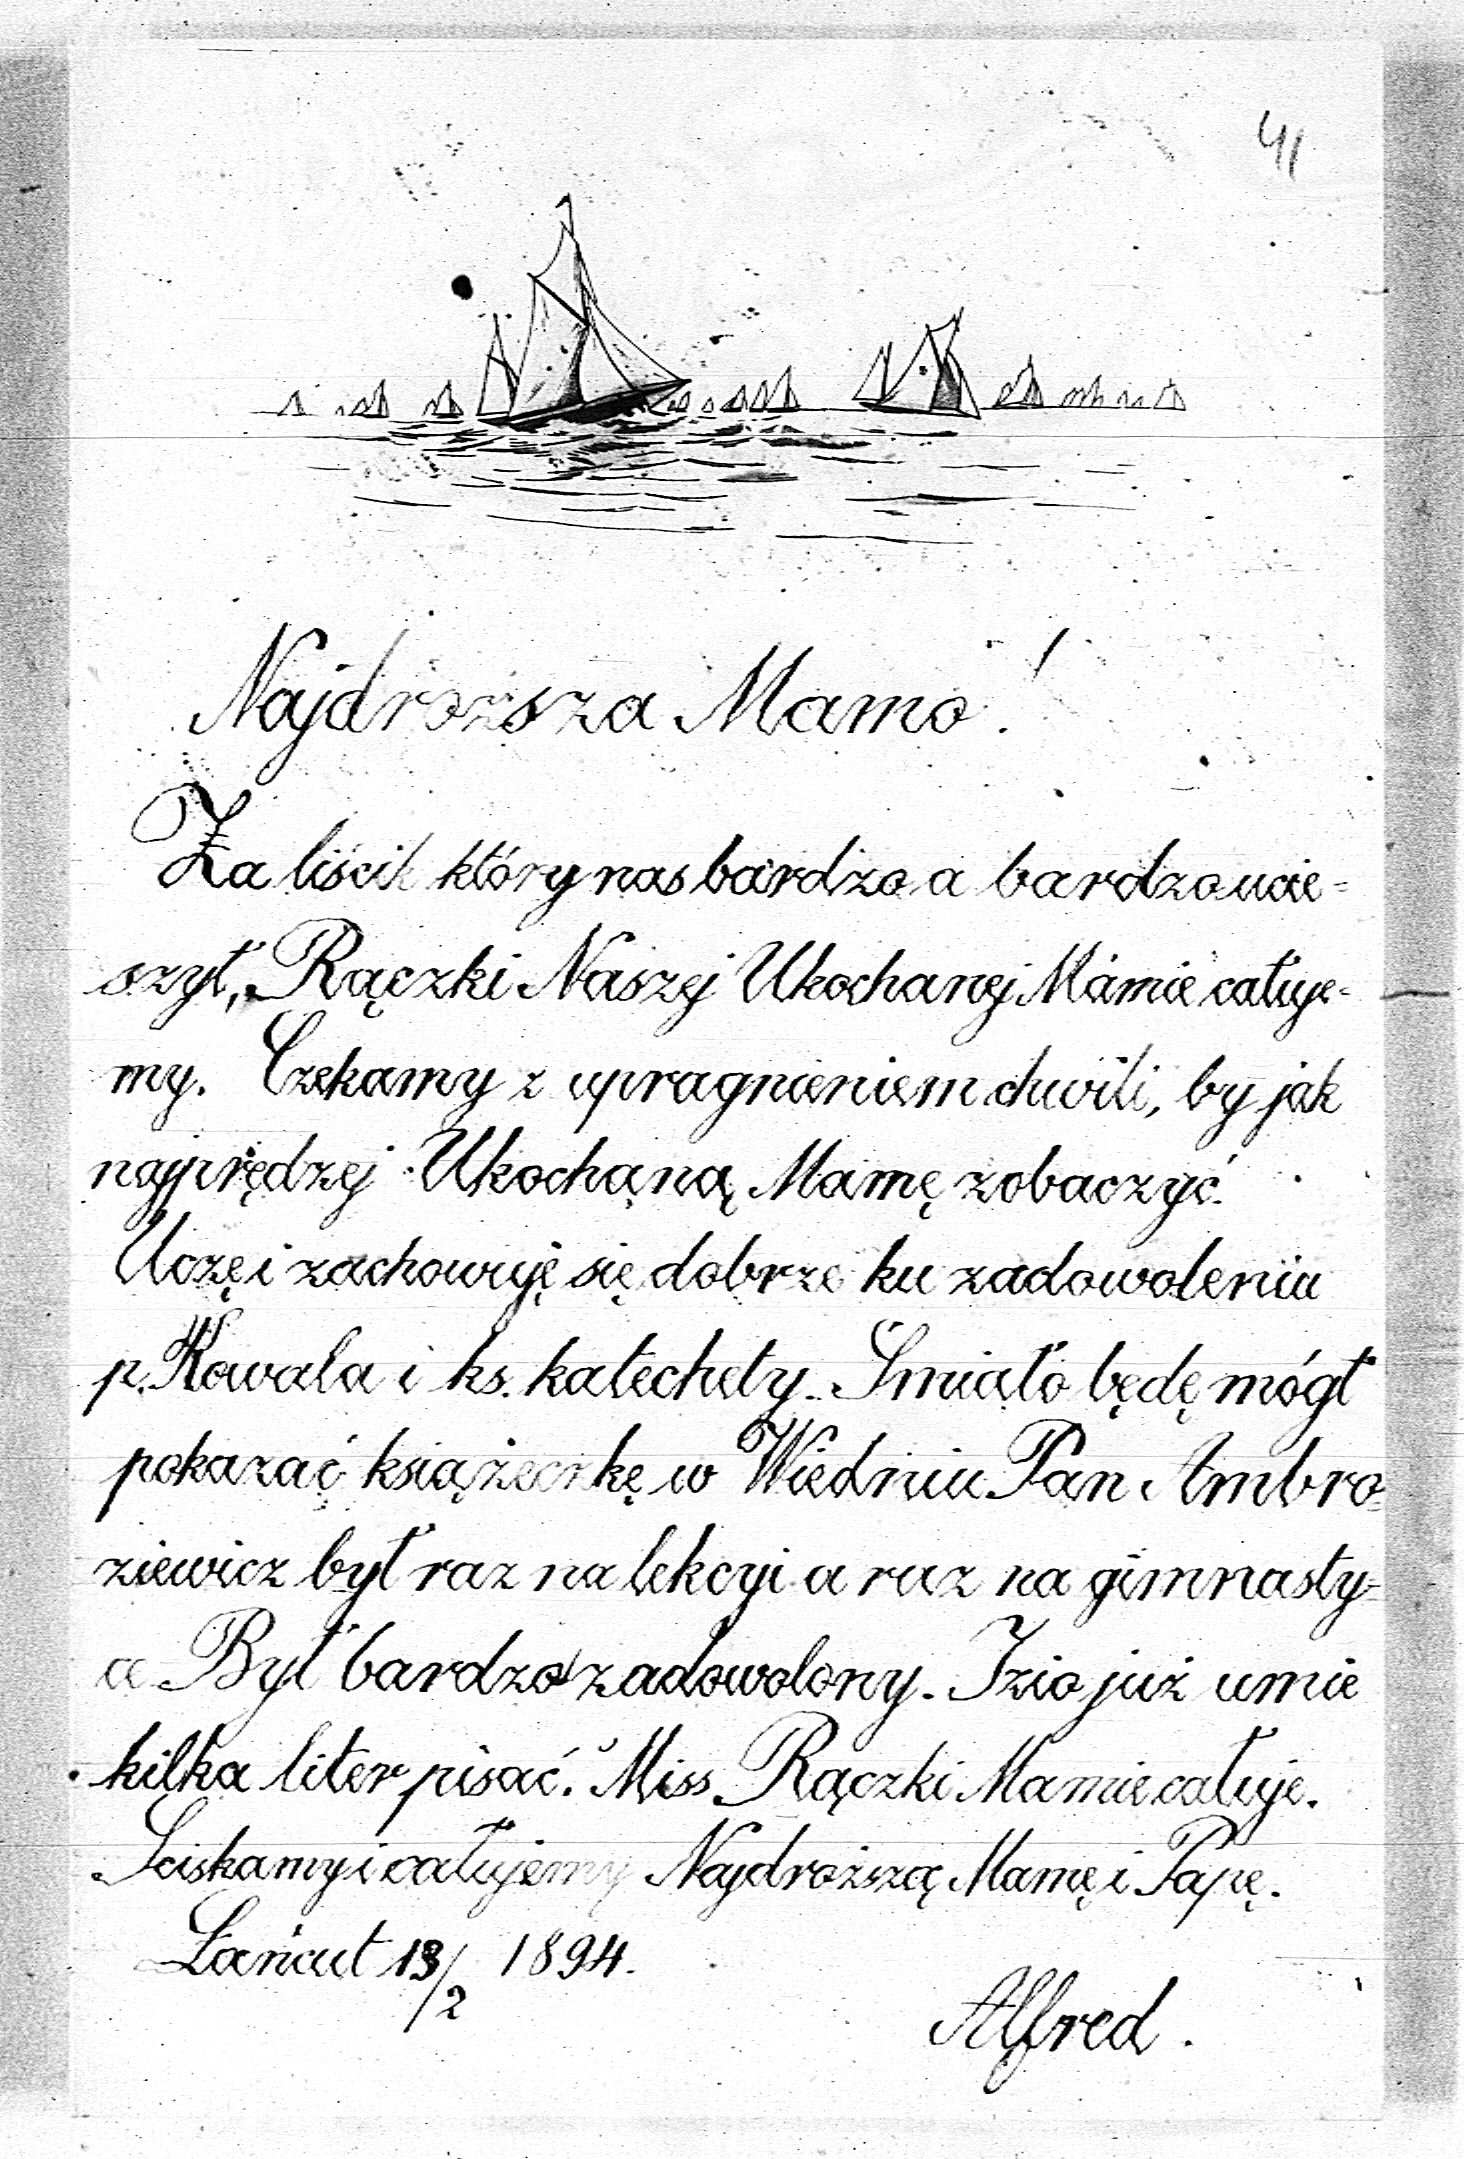 41
Najdrozsza Mamo!
Za liścik który nas bardzo a bardzo ucie=
szył, Rączki Naszej Ukochanej Mamie całuje-
my. Czekamy z upragnieniem chwili, by jak
najprędzej Ukochaną Mamę zobaczyć.
Uczę i zachowuję się dobrze ku zadowoleniu
p. Kowala i ks. katechety. Śmiało będę mógł
pokazać książeczkę w Wiedniu Pan Ambro=
ziewicz był raz na lekcyi a raz na gimnasty=
a Był bardzo zadowolony. Izio już umie
kilka liter pisać. Miss Rączki Mamie całuje.
Sciskamy i całujemy Najdroższą Mamę i Papę.
Łańcut 13/2 1894.
Alfred.